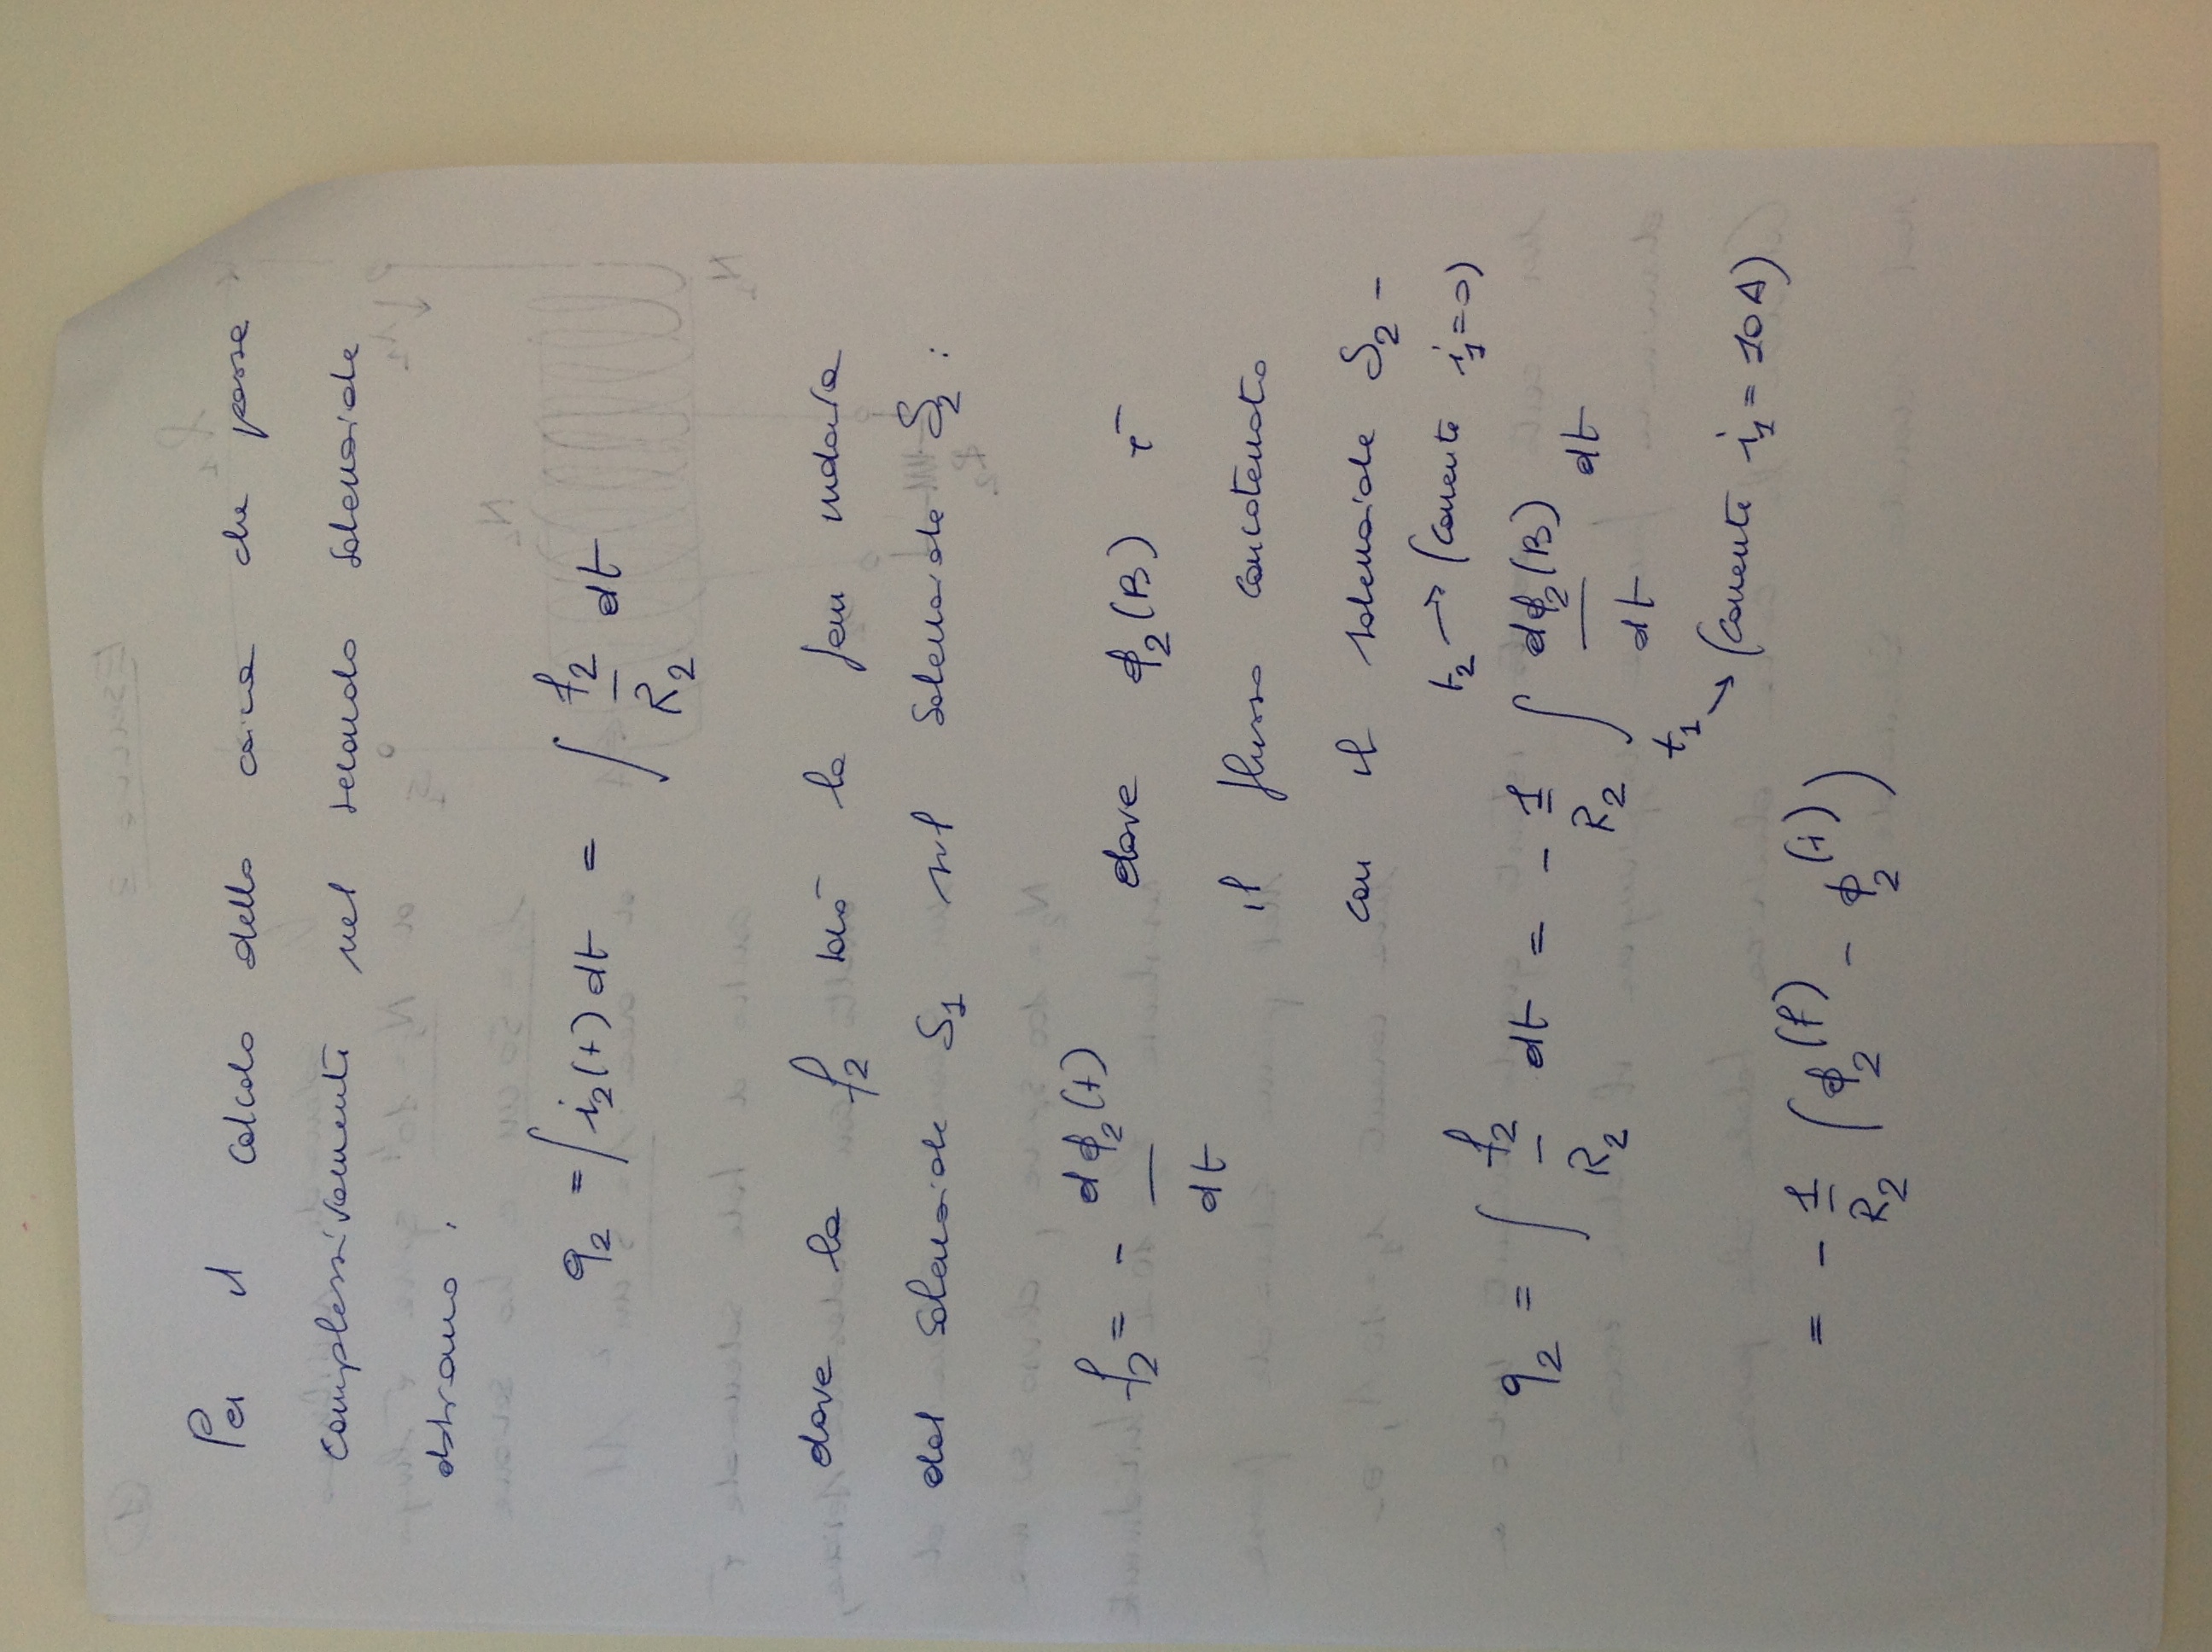 Per il calcolo della carica che passa
complessivamente nel secondo solenoide
abbiamo :
q₂ = ∫ i₂(t) dt = ∫ f₂/R₂ dt
dove la f₂ sarà la fem indotta
dal solenoide S₁ sul solenoide S₂ :
f₂ = - dϕ₂(t)/dt dove ϕ₂(B) è
il flusso concatenato
con il solenoide S₂ -
t₂ → (corrente i₁=0)
q₂ = ∫ f₂/R₂ dt = - 1/R₂ ∫ dϕ₂(B)/dt dt
t₁ → (corrente i₁ = 10 A)
= - 1/R₂ (ϕ₂^(f) - ϕ₂^(i))